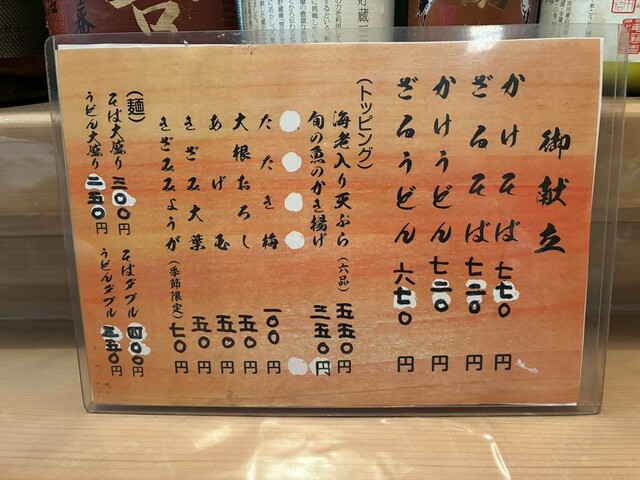 御献立
かけそば 七七〇円
ざるそば 七二〇円
かけうどん 七二〇円
ざるうどん 六七〇円
(トッピング)
海老入り天ぷら(六品) 五五〇円
旬の魚のかき揚げ 三五〇円
たたき梅 一〇〇円
大根おろし 五〇円
あげ玉 五〇円
きざみ大葉 五〇円
きざみみょうが(季節限定) 七〇円
(麺)
そば大盛り 三〇〇円
うどん大盛り 二五〇円
そばダブル 四〇〇円
うどんダブル 三五〇円